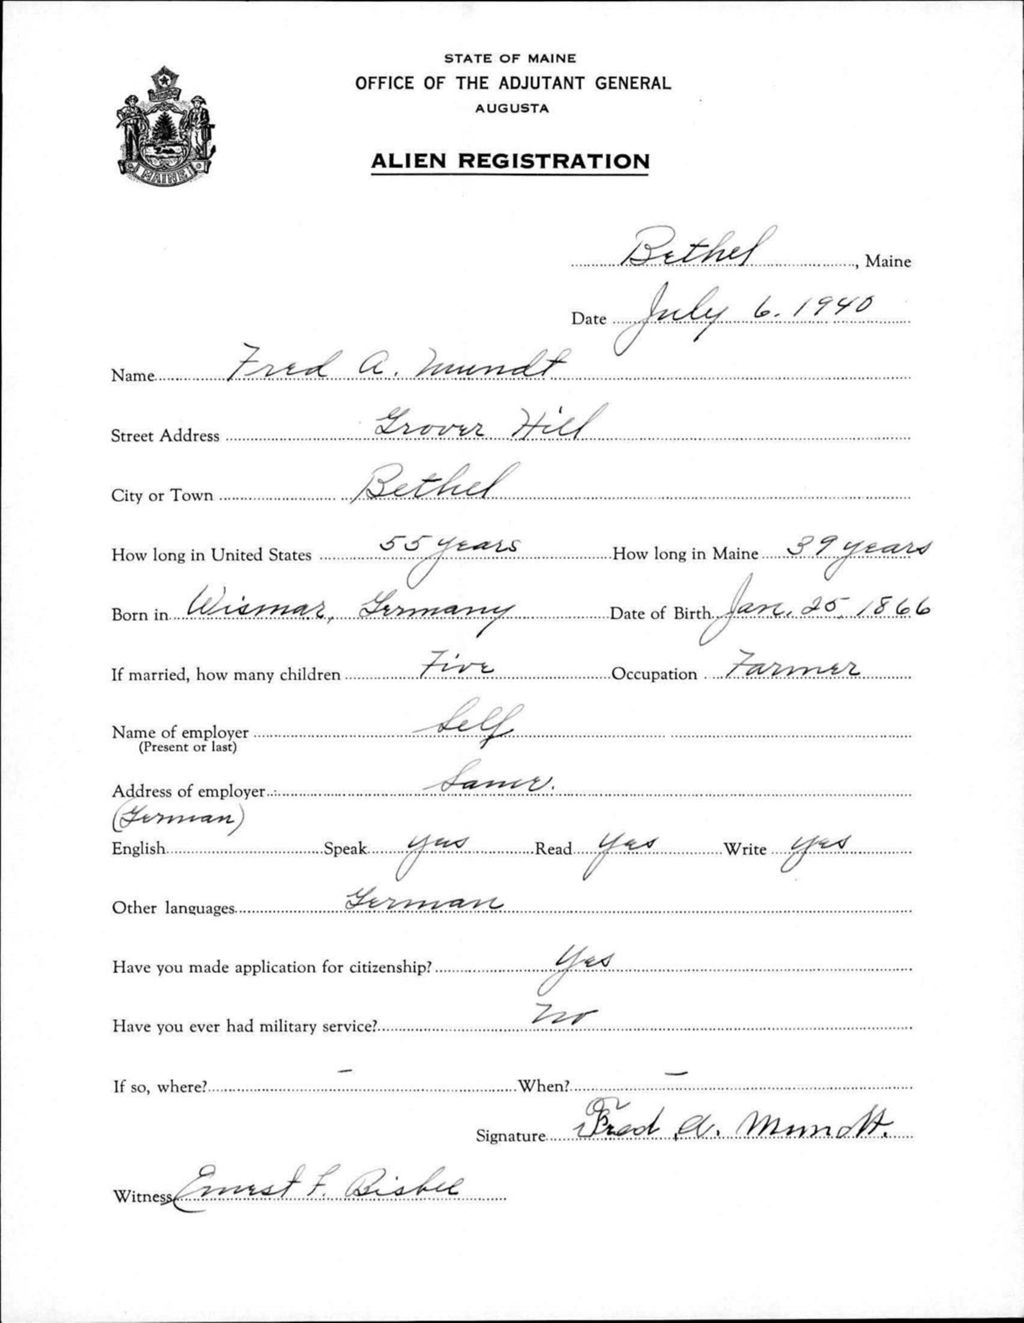 STATE OF MAINE
OFFICE OF THE ADJUTANT GENERAL
AUGUSTA
ALIEN REGISTRATION
MAINE
Bethel, Maine
Date July 6. 1940
Name Fred A. Mundt
Street Address Grover Hill
City or Town Bethel
How long in United States 55 years How long in Maine 39 years
Born in Wismar, Germany Date of Birth Jan. 25, 1866
If married, how many children Five Occupation Farmer
Name of employer Self
(Present or last)
Address of employer Same.
(German)
English Speak yes Read Yes Write yes
Other languages German
Have you made application for citizenship? Yes
Have you ever had military service? No
If so, where? – When? –
Signature Fred A. Mundt.
Witness Ernest F. Bisbee